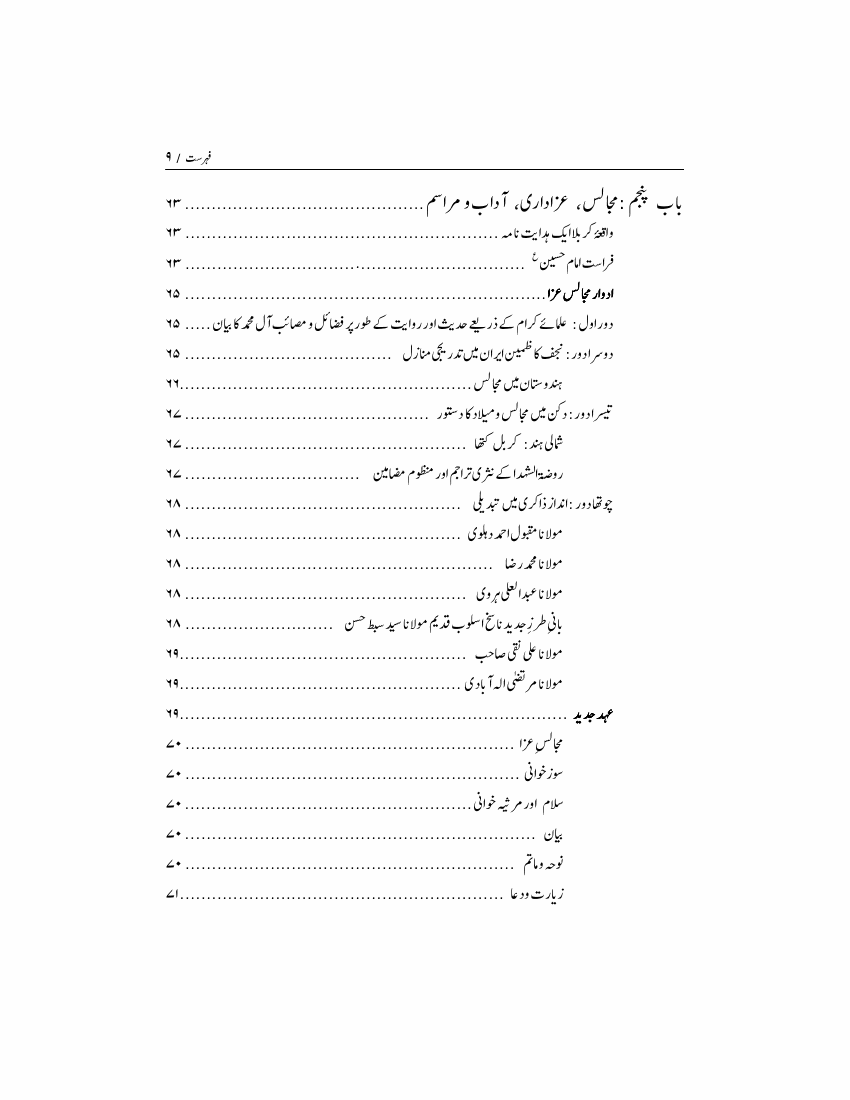 فہرست / ۹
باب پنجم : مجالس، عزاداری، آداب و مراسم ........ ۶۳
واقعۂ کربلا ایک ہدایت نامہ ........ ۶۳
فراست امام حسینؑ ........ ۶۳
ادوار مجالس عزا ........ ۶۵
دور اول : علمائے کرام کے ذریعے حدیث اور روایت کے طور پر فضائل و مصائب آل محمد کا بیان ..... ۶۵
دوسرا دور : نجف کاظمین ایران میں تدریجی منازل ........ ۶۵
ہندوستان میں مجالس ........ ۶۶
تیسرا دور : دکن میں مجالس و میلاد کا دستور ........ ۶۷
شمالی ہند : کربل کتھا ........ ۶۷
روضۃ الشہدا کے نثری تراجم اور منظوم مضامین ........ ۶۷
چوتھا دور : انداز ذاکری میں تبدیلی ........ ۶۸
مولانا مقبول احمد دہلوی ........ ۶۸
مولانا محمد رضا ........ ۶۸
مولانا عبدالعلی ہروی ........ ۶۸
بانیِ طرزِ جدید ناسخ اسلوب قدیم مولانا سید سبط حسن ........ ۶۸
مولانا علی نقی صاحب ........ ۶۹
مولانا مرتضیٰ الہ آبادی ........ ۶۹
عہد جدید ........ ۶۹
مجالسِ عزا ........ ۷۰
سوز خوانی ........ ۷۰
سلام اور مرثیہ خوانی ........ ۷۰
بیان ........ ۷۰
نوحہ و ماتم ........ ۷۰
زیارت و دعا ........ ۷۱